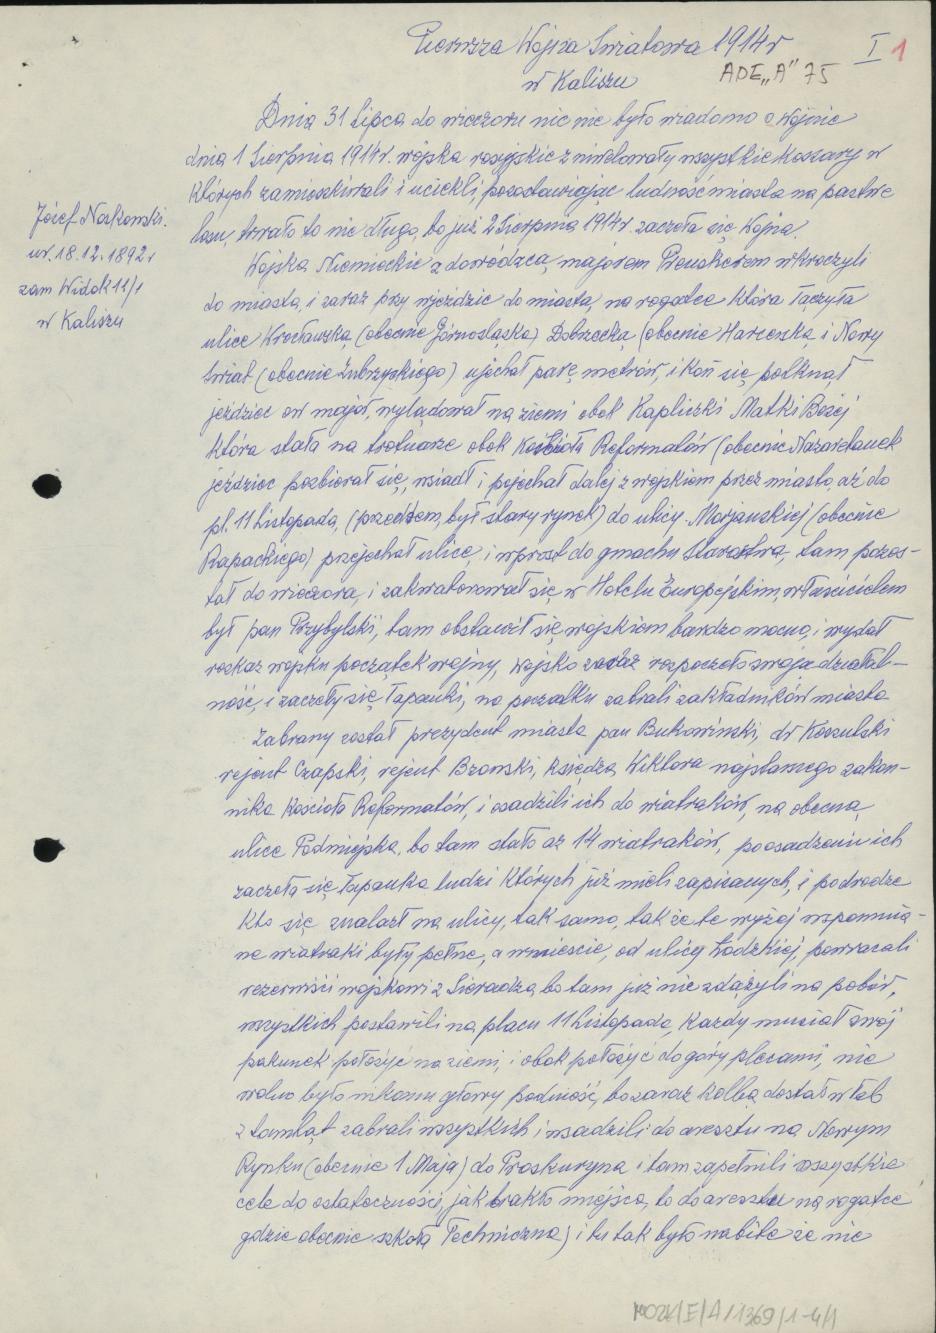 Pierwsza Wojna Światowa 1914r
I 1
w Kaliszu
ADE „A" 75
Dnia 31 Lipca do wieczoru nic nie było wiadomo o wojnie
dnia 1 Sierpnia 1914r. wojska rosyjskie zniwelowały wszystkie koszary w
których zamieszkiwali i uciekli, pozostawiając ludność miasta na pastwe
losu, trwało to nie długo, bo już 2 Sierpnia 1914r. zaczęła się Wojna.
Józef Noskowski.
ur. 18.12.1892r
zam Widok 11/1
w Kaliszu
Wojska Niemieckie z dowódzcą, majorem Preuskerem wkroczyli
do miasta, i zaraz przy wjeździe do miasta, na rogatce która łączyła
ulice Wrocławską, (obecnie Górnośląska) Dobrzecką (obecnie Harcerska, i Nowy
Świat (obecnie Zubrzyckiego) ujechał parę metrów, i koń się potknął
jeździec ów major, wylądował na ziemi obok Kapliczki Matki Bożej
która stała na trotuarze obok Kościoła Reformatów (obecnie Nazaretanek
jeździec pozbierał się, wsiadł i pojechał dalej z wojskiem przez miasto, aż do
pl. 11 Listopada, (przedtem był stary rynek) do ulicy Marjańskiej (obecnie
Rapackiego) przejechał ulicę, i wprost do gmachu Starostwa, tam pozos-
tał do wieczora, i zakwaterował się w Hotelu Europejskim, właścicielem
był pan Przybylski, tam obstawił się wojskiem bardzo mocno, i wydał
rozkaz wojsku początek wojny, wojsko zaraz rozpoczęło swoją działal-
ność, i zaczęły się łapanki, na początku zabrali zakładników miasta
Zabrany został prezydent miasta pan Bukowiński, dr Koszutski
rejent Czapski, rejent Bzowski, księdza Wiktora najstarszego zakon-
nika Kościoła Reformatów, i osadzili ich do wiatraków, na obecną
ulice Podmiejską, bo tam stało aż 14 wiatraków, po osadzeniu ich
zaczęła się łapanka ludzi których już mieli zapisanych, i po drodze
kto się znalazł na ulicy, tak samo, tak że te wyżej wspomnia-
ne wiatraki były pełne, a w mieście, od ulicy Łódzkiej, powracali
rezerwiści wojskowi z Sieradza, bo tam już nie zdążyli na pobór,
wszystkich postawili na placu 11 Listopada, każdy musiał swój
pakunek położyć na ziemi, i obok położyć do góry plecami, nie
wolno było nikomu głowy podnieść, bo zaraz kolbą dostał w łeb
z tamtąt zabrali wszystkich i wsadzili do aresztu na Nowym
Rynku (obecnie 1 Maja) do Proskuryna i tam zapełnili wszystkie
cele do ostateczności, jak brakło miejsca, to do aresztu na rogatce
gdzie obecnie szkoła Techniczna) i tu tak było nabite że nie